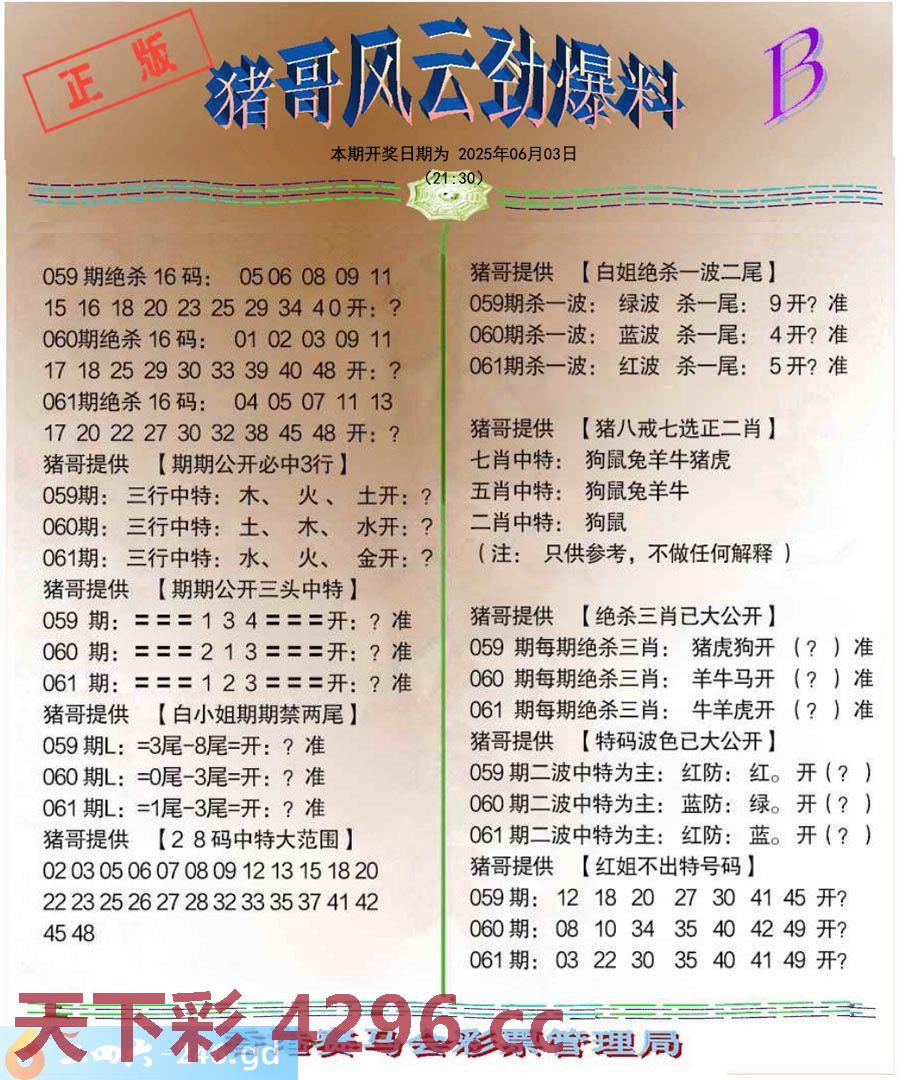 正版
猪哥风云劲爆料
B
本期开奖日期为 2025年06月03日
（21:30）
059 期绝杀 16 码： 05 06 08 09 11
15 16 18 20 23 25 29 34 4 0 开：?
060期绝杀 16 码： 01 02 03 09 11
17 18 25 29 30 33 39 40 48 开：?
061期绝杀 16 码： 04 05 07 11 13
17 20 22 27 30 32 38 45 48 开：?
猪哥提供 【期期公开必中3行】
059期： 三行中特： 木、 火 、 土开：?
060期： 三行中特： 土、 木、 水开：?
061期： 三行中特： 水、 火、 金开：?
猪哥提供 【期期公开三头中特】
059 期：＝＝＝ 1 3 4 ＝＝＝开：? 准
060 期：＝＝＝ 2 1 3 ＝＝＝开：? 准
061 期：＝＝＝ 1 2 3 ＝＝＝开：? 准
猪哥提供 【白小姐期期禁两尾】
059 期L：=3尾-8尾=开：? 准
060 期L：=0尾-3尾=开：? 准
061 期L：=1尾-3尾=开：? 准
猪哥提供 【2 8 码中特大范围】
02 03 05 06 07 08 09 12 13 15 18 20
22 23 25 26 27 28 32 33 35 37 41 42
45 48
猪哥提供 【白姐绝杀一波二尾】
059期杀一波： 绿波 杀一尾： 9 开? 准
060期杀一波： 蓝波 杀一尾： 4 开? 准
061期杀一波： 红波 杀一尾： 5 开? 准
猪哥提供 【猪八戒七选正二肖】
七肖中特： 狗鼠兔羊牛猪虎
五肖中特： 狗鼠兔羊牛
二肖中特： 狗鼠
（注： 只供参考，不做任何解释 ）
猪哥提供 【绝杀三肖已大公开】
059 期每期绝杀三肖： 猪虎狗开 （? ）准
060 期每期绝杀三肖： 羊牛马开 （? ）准
061 期每期绝杀三肖： 牛羊虎开 （? ）准
猪哥提供 【特码波色已大公开】
059 期二波中特为主： 红防： 红。 开（? ）
060 期二波中特为主： 蓝防： 绿。 开（? ）
061 期二波中特为主： 红防： 蓝。 开（? ）
猪哥提供 【红姐不出特号码】
059 期： 12 18 20 27 30 41 45 开?
060 期： 08 10 34 35 40 42 49 开?
061 期： 03 22 30 35 40 41 49 开?
天下彩 4296.cc
马会彩票管理局